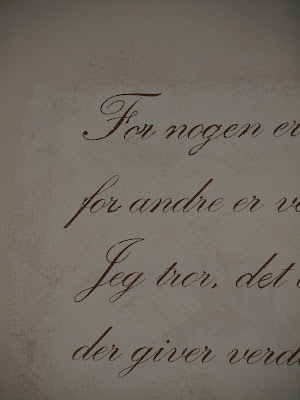 For nogen er
for andre er
Jeg tror, det
der giver